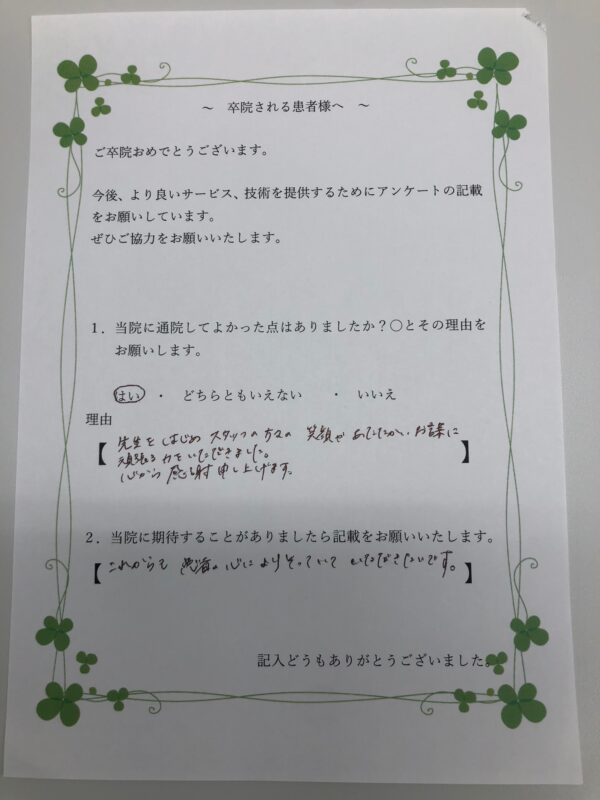 ～　卒院される患者様へ　～
ご卒院おめでとうございます。
今後、より良いサービス、技術を提供するためにアンケートの記載
をお願いしています。
ぜひご協力をお願いいたします。
１．当院に通院してよかった点はありましたか？〇とその理由を
お願いします。
はい　・　どちらともいえない　・　いいえ
理由
【先生をはじめ スタッフの方々の 笑顔や あたたかい お言葉に
頑張る力をいただきました。
心から 感謝申し上げます。】
２．当院に期待することがありましたら記載をお願いいたします。
【これからも 患者の心によりそっていて いただきたいです。】
記入どうもありがとうございました。